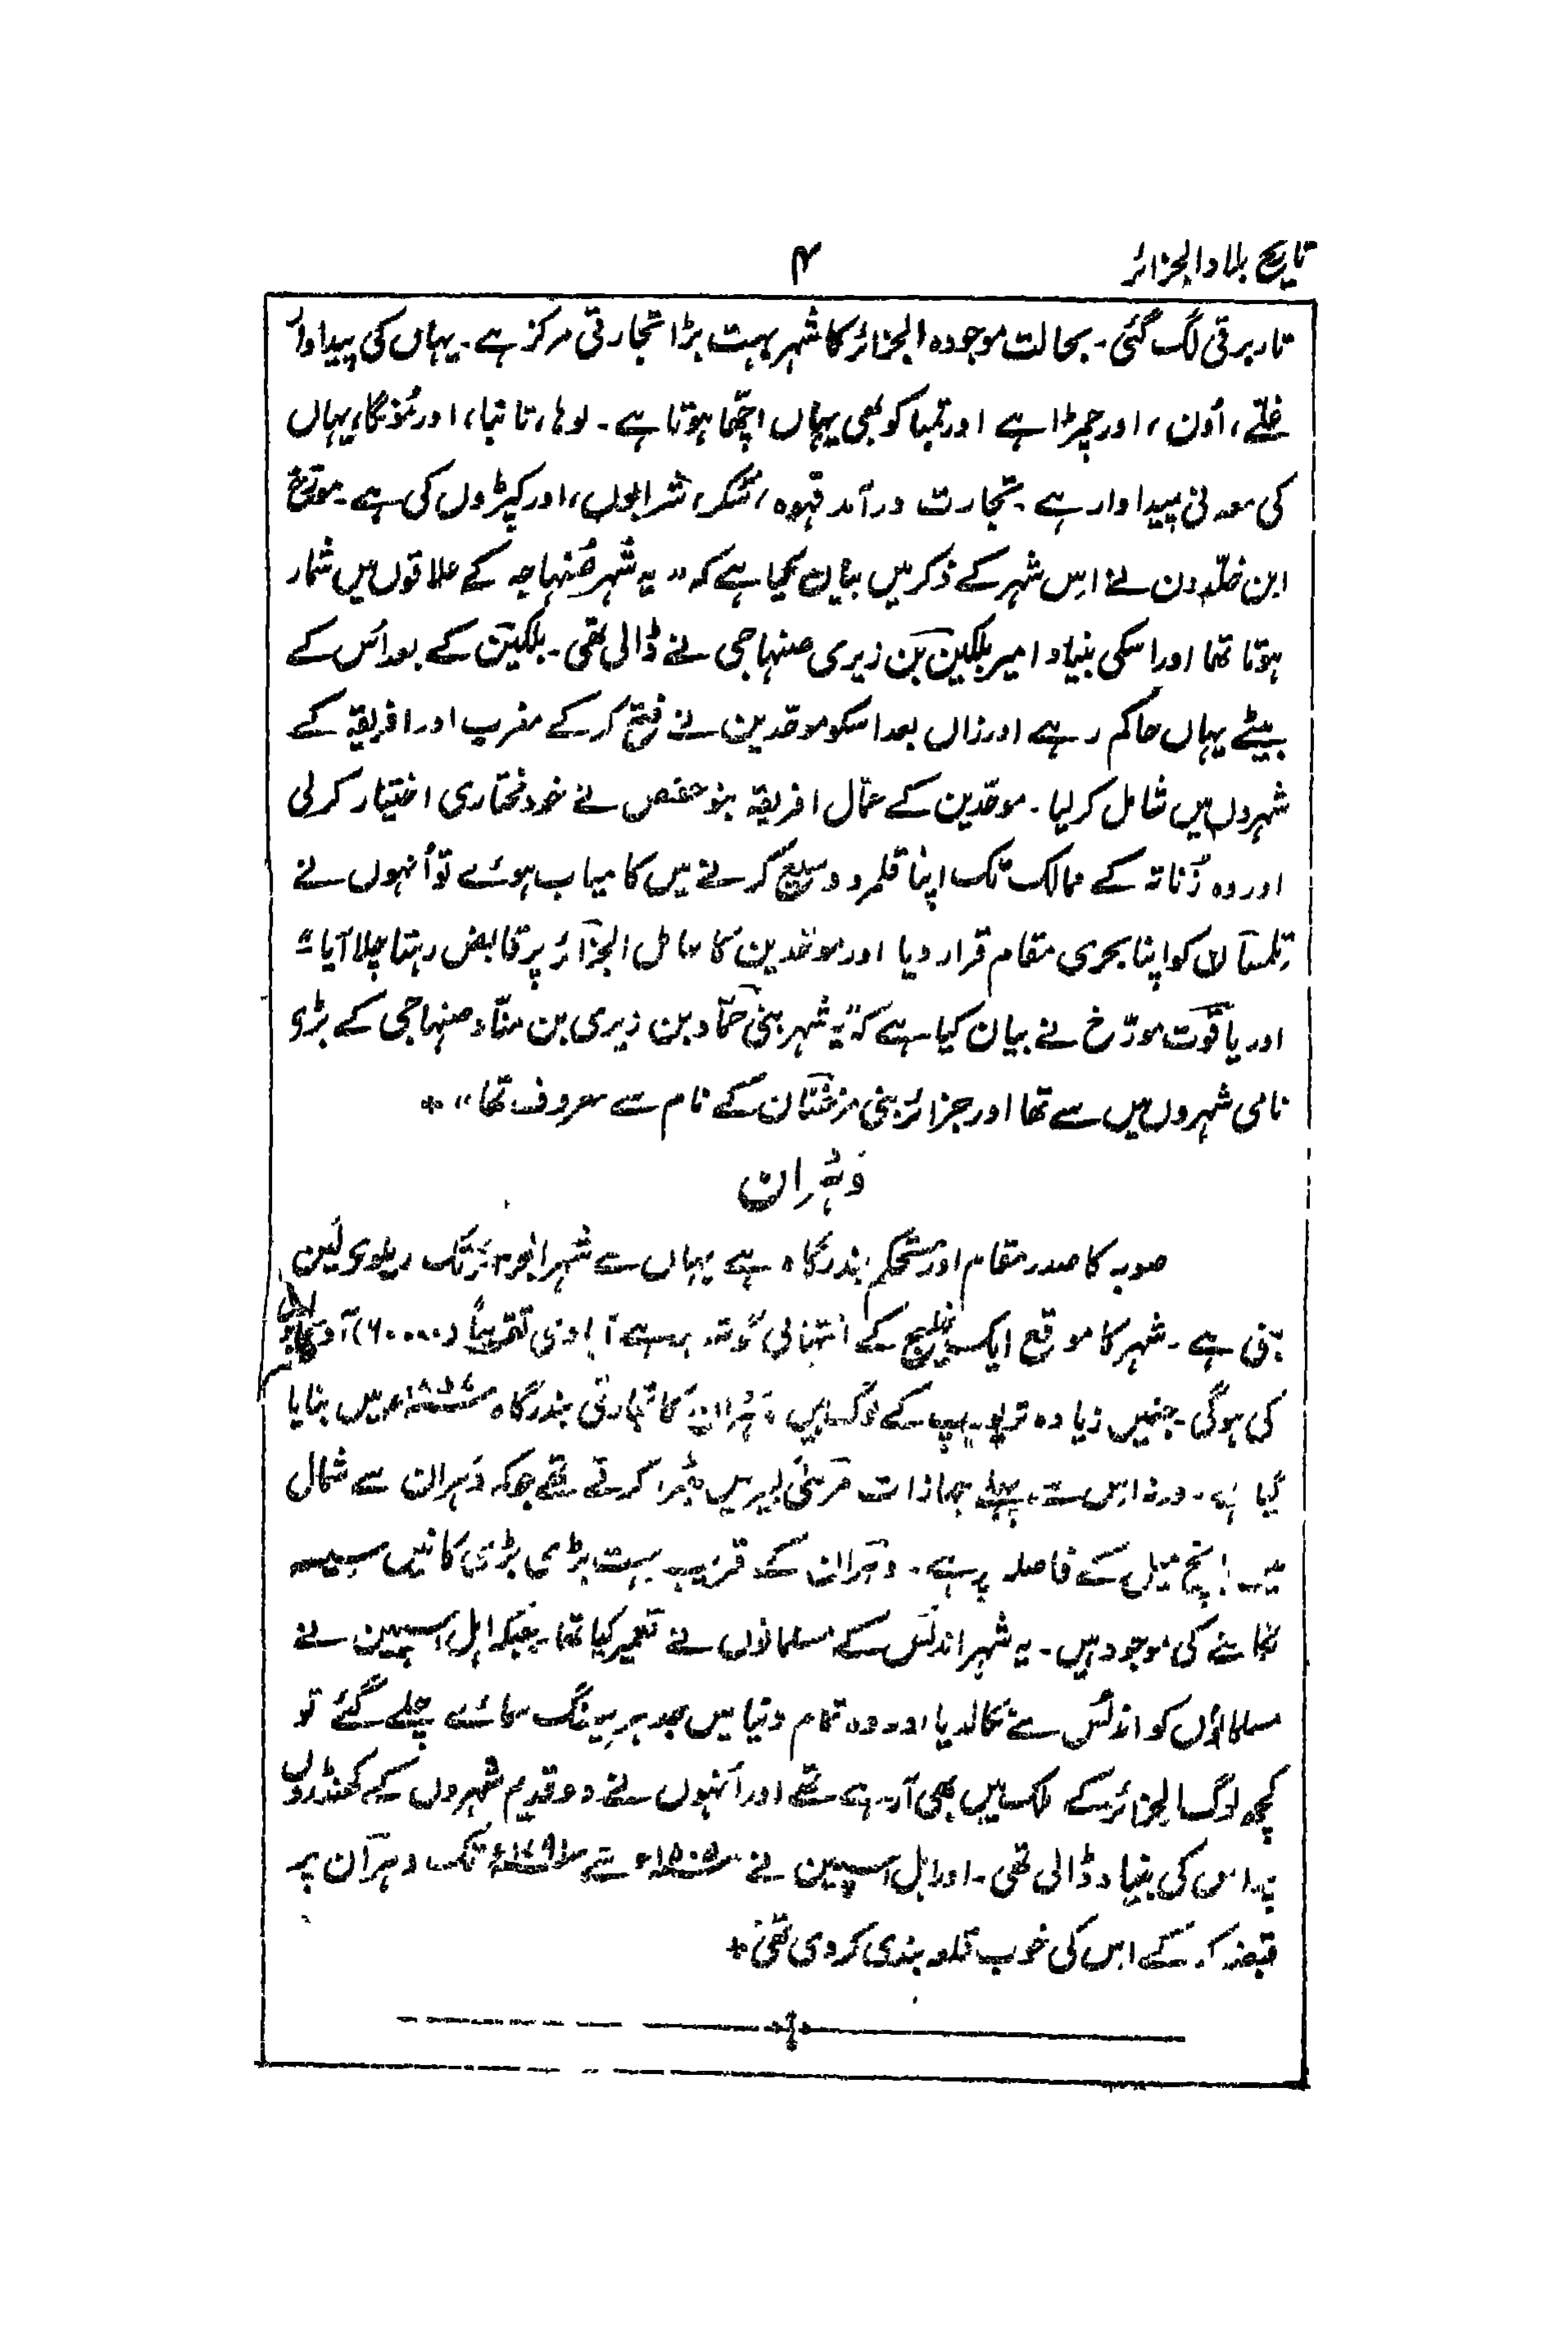 تاریخ بلاد الجزائر
۴
تار برقی لگ گئی۔ بحالت موجودہ الجزائر کا شہر بہت بڑا تجارتی مرکز ہے۔ یہاں کی پیداوار
غلّے، اُون، اور چمڑا ہے اور تمباکو بھی یہاں اچھّا ہوتا ہے۔ لوہا، تانبا، اور مُونگا، یہاں
کی معدنی پیداوار ہے۔ تجارت درآمد قہوہ، شکر، شرابوں، اور کپڑوں کی ہے۔ مورّخ
ابن خلّدون نے اِس شہر کے ذکر میں بیان کیا ہے کہ "یہ شہر صُنہاجہ کے علاقوں میں شمار
ہوتا تھا اور اسکی بنیاد امیر بلکین بن زیری صنہاجی نے ڈالی تھی۔ بلکین کے بعد اُس کے
بیٹے یہاں حاکم رہے اور زاں بعد اسکو موحّدین نے فتح کر کے مغرب اور افریقہ کے
شہروں میں شامل کر لیا۔ موحّدین کے عمّال افریقہ بنو حفص نے خود مختاری اختیار کر لی
اور وہ زَناتہ کے ممالک تک اپنا قلمرو وسیع کرنے میں کامیاب ہوئے تو اُنہوں نے
تِلمسان کو اپنا بحری مقام قرار دیا اور موحّدین کا عامل الجزائر پر قابض رہتا چلا آیا"
اور یاقوت مورّخ نے بیان کیا ہے کہ "یہ شہر بنی حمّاد بن زیری بن منّاد صنہاجی کے بڑے
نامی شہروں میں سے تھا اور جزائر بنی مزغنّان کے نام سے معروف تھا" +
وَہْران
صوبہ کا صدر مقام اور مستحکم بندرگاہ ہے یہاں سے شہر تک ریلوی لَین
بنی ہے۔ شہر کا موقع ایک خلیج کے انتہائی گوشہ پر ہے آبادی تقریباً (۶۰۰۰۰)
کی ہوگی۔ جنمیں زیادہ تر یورپ کے لوگ ہیں، وَہْران کا تجارتی بندرگاہ میں بنایا
گیا ہے۔ ورنہ اس سے پہلے جہازات مرسیٰ کبیر میں ٹھہرا کرتے تھے جو کہ وَہران سے شمال
میں پانچ میل کے فاصلہ پر ہے۔ وہران کے قریب بہت بڑی بڑی کانیں سیسہ
نکالنے کی موجود ہیں۔ یہ شہر اندلس کے مسلمانوں نے تعمیر کیا تھا۔ جبکہ اہل اسپین نے
مسلمانوں کو اندلُس سے نکالدیا اور وہ تمام دنیا میں جدہر سینگ سمائے چلے گئے تو
کچھ لوگ الجزائر کے ملک میں بھی آرہے تھے اور اُنہوں نے دو قدیم شہروں کے کھنڈروں
پر اس کی بنیاد ڈالی تھی۔ اور اہل اسپین نے ۱۵۰۵ء سے ۱۷۹۲ء تک وہران پر
قبضہ کر کے اس کی خوب قلعہ بندی کر دی تھی +